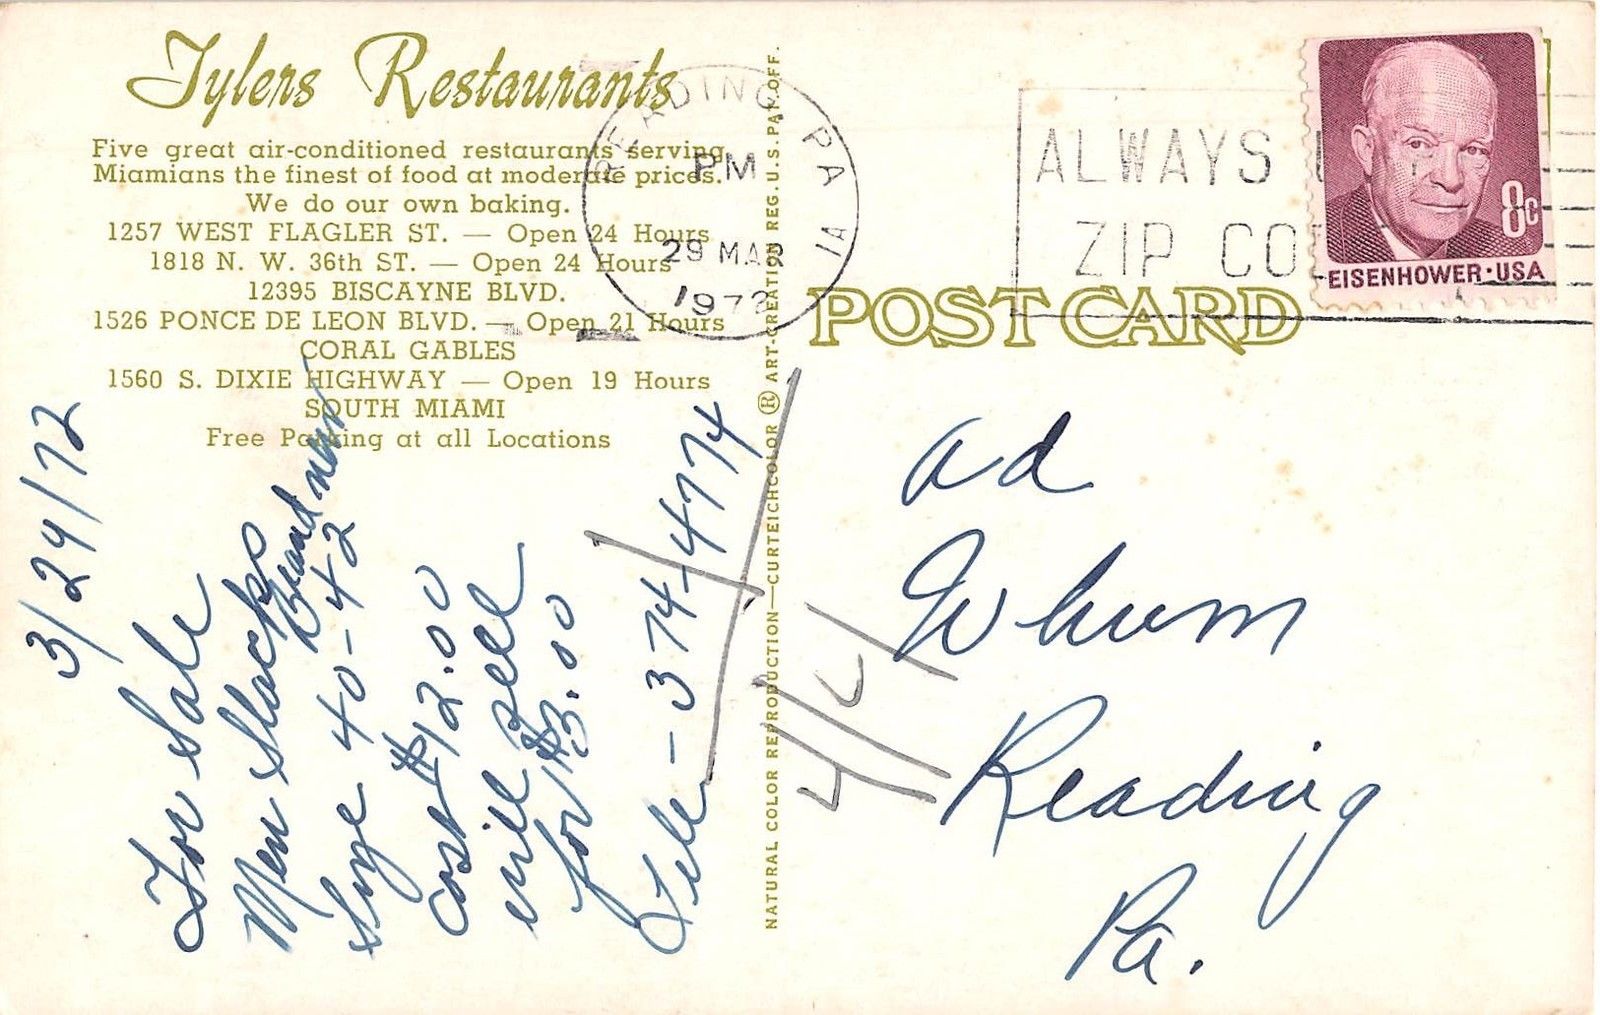 Tylers Restaurants
Five great air-conditioned restaurants serving
Miamians the finest of food at moderate prices.
We do our own baking.
1257 WEST FLAGLER ST. — Open 24 Hours
1818 N. W. 36th ST. — Open 24 Hours
12395 BISCAYNE BLVD.
1526 PONCE DE LEON BLVD. — Open 21 Hours
CORAL GABLES
1560 S. DIXIE HIGHWAY — Open 19 Hours
SOUTH MIAMI
Free Parking at all Locations
3/29/72
For Sale
Men Slacks
Brand new
Size 40-42
Cost $12.00
will Sell
for $3.00
Tele - 374-4774
NATURAL COLOR REPRODUCTION—CURTEICHCOLOR ® ART-CREATION REG. U.S. PAT. OFF.
READING PA
PM
29 MAR
1972
ALWAYS
ZIP CO
8c
EISENHOWER·USA
POST CARD
ad
Whum
Reading
Pa.
4/4/